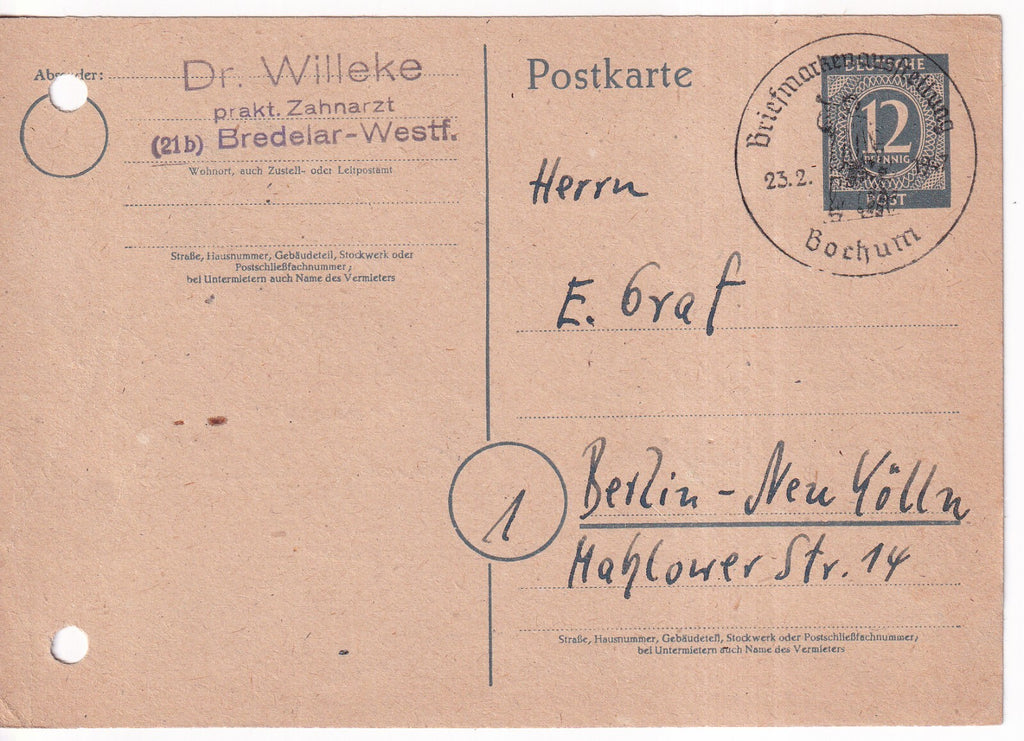 Absender:
Dr. Willeke
prakt. Zahnarzt
(21b) Bredelar-Westf.
Wohnort, auch Zustell- oder Leitpostamt
Straße, Hausnummer, Gebäudeteil, Stockwerk oder
Postschließfachnummer;
bei Untermietern auch Name des Vermieters
Postkarte
DEUTSCHE
12
PFENNIG
POST
Briefmarkenausstellung
23.2.
Bochum
Herrn
E. Graf
1
Berlin - Neu Kölln
Mahlower Str. 14
Straße, Hausnummer, Gebäudeteil, Stockwerk oder Postschließfachnummer;
bei Untermietern auch Name des Vermieters